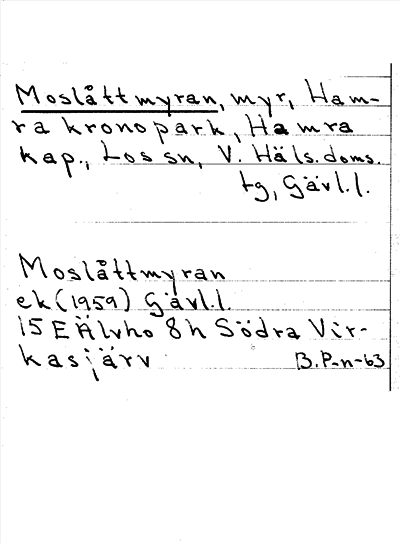 Moslåttmyran, myr, Ham-
ra kronopark, Hamra
kap., Los sn, V. Häls. doms.
tg, Gävl. l.
Moslåttmyran
ek (1959) Gävl. l.
15 E Älvho 8 h Södra Vir-
kasjärv B. P-n-63